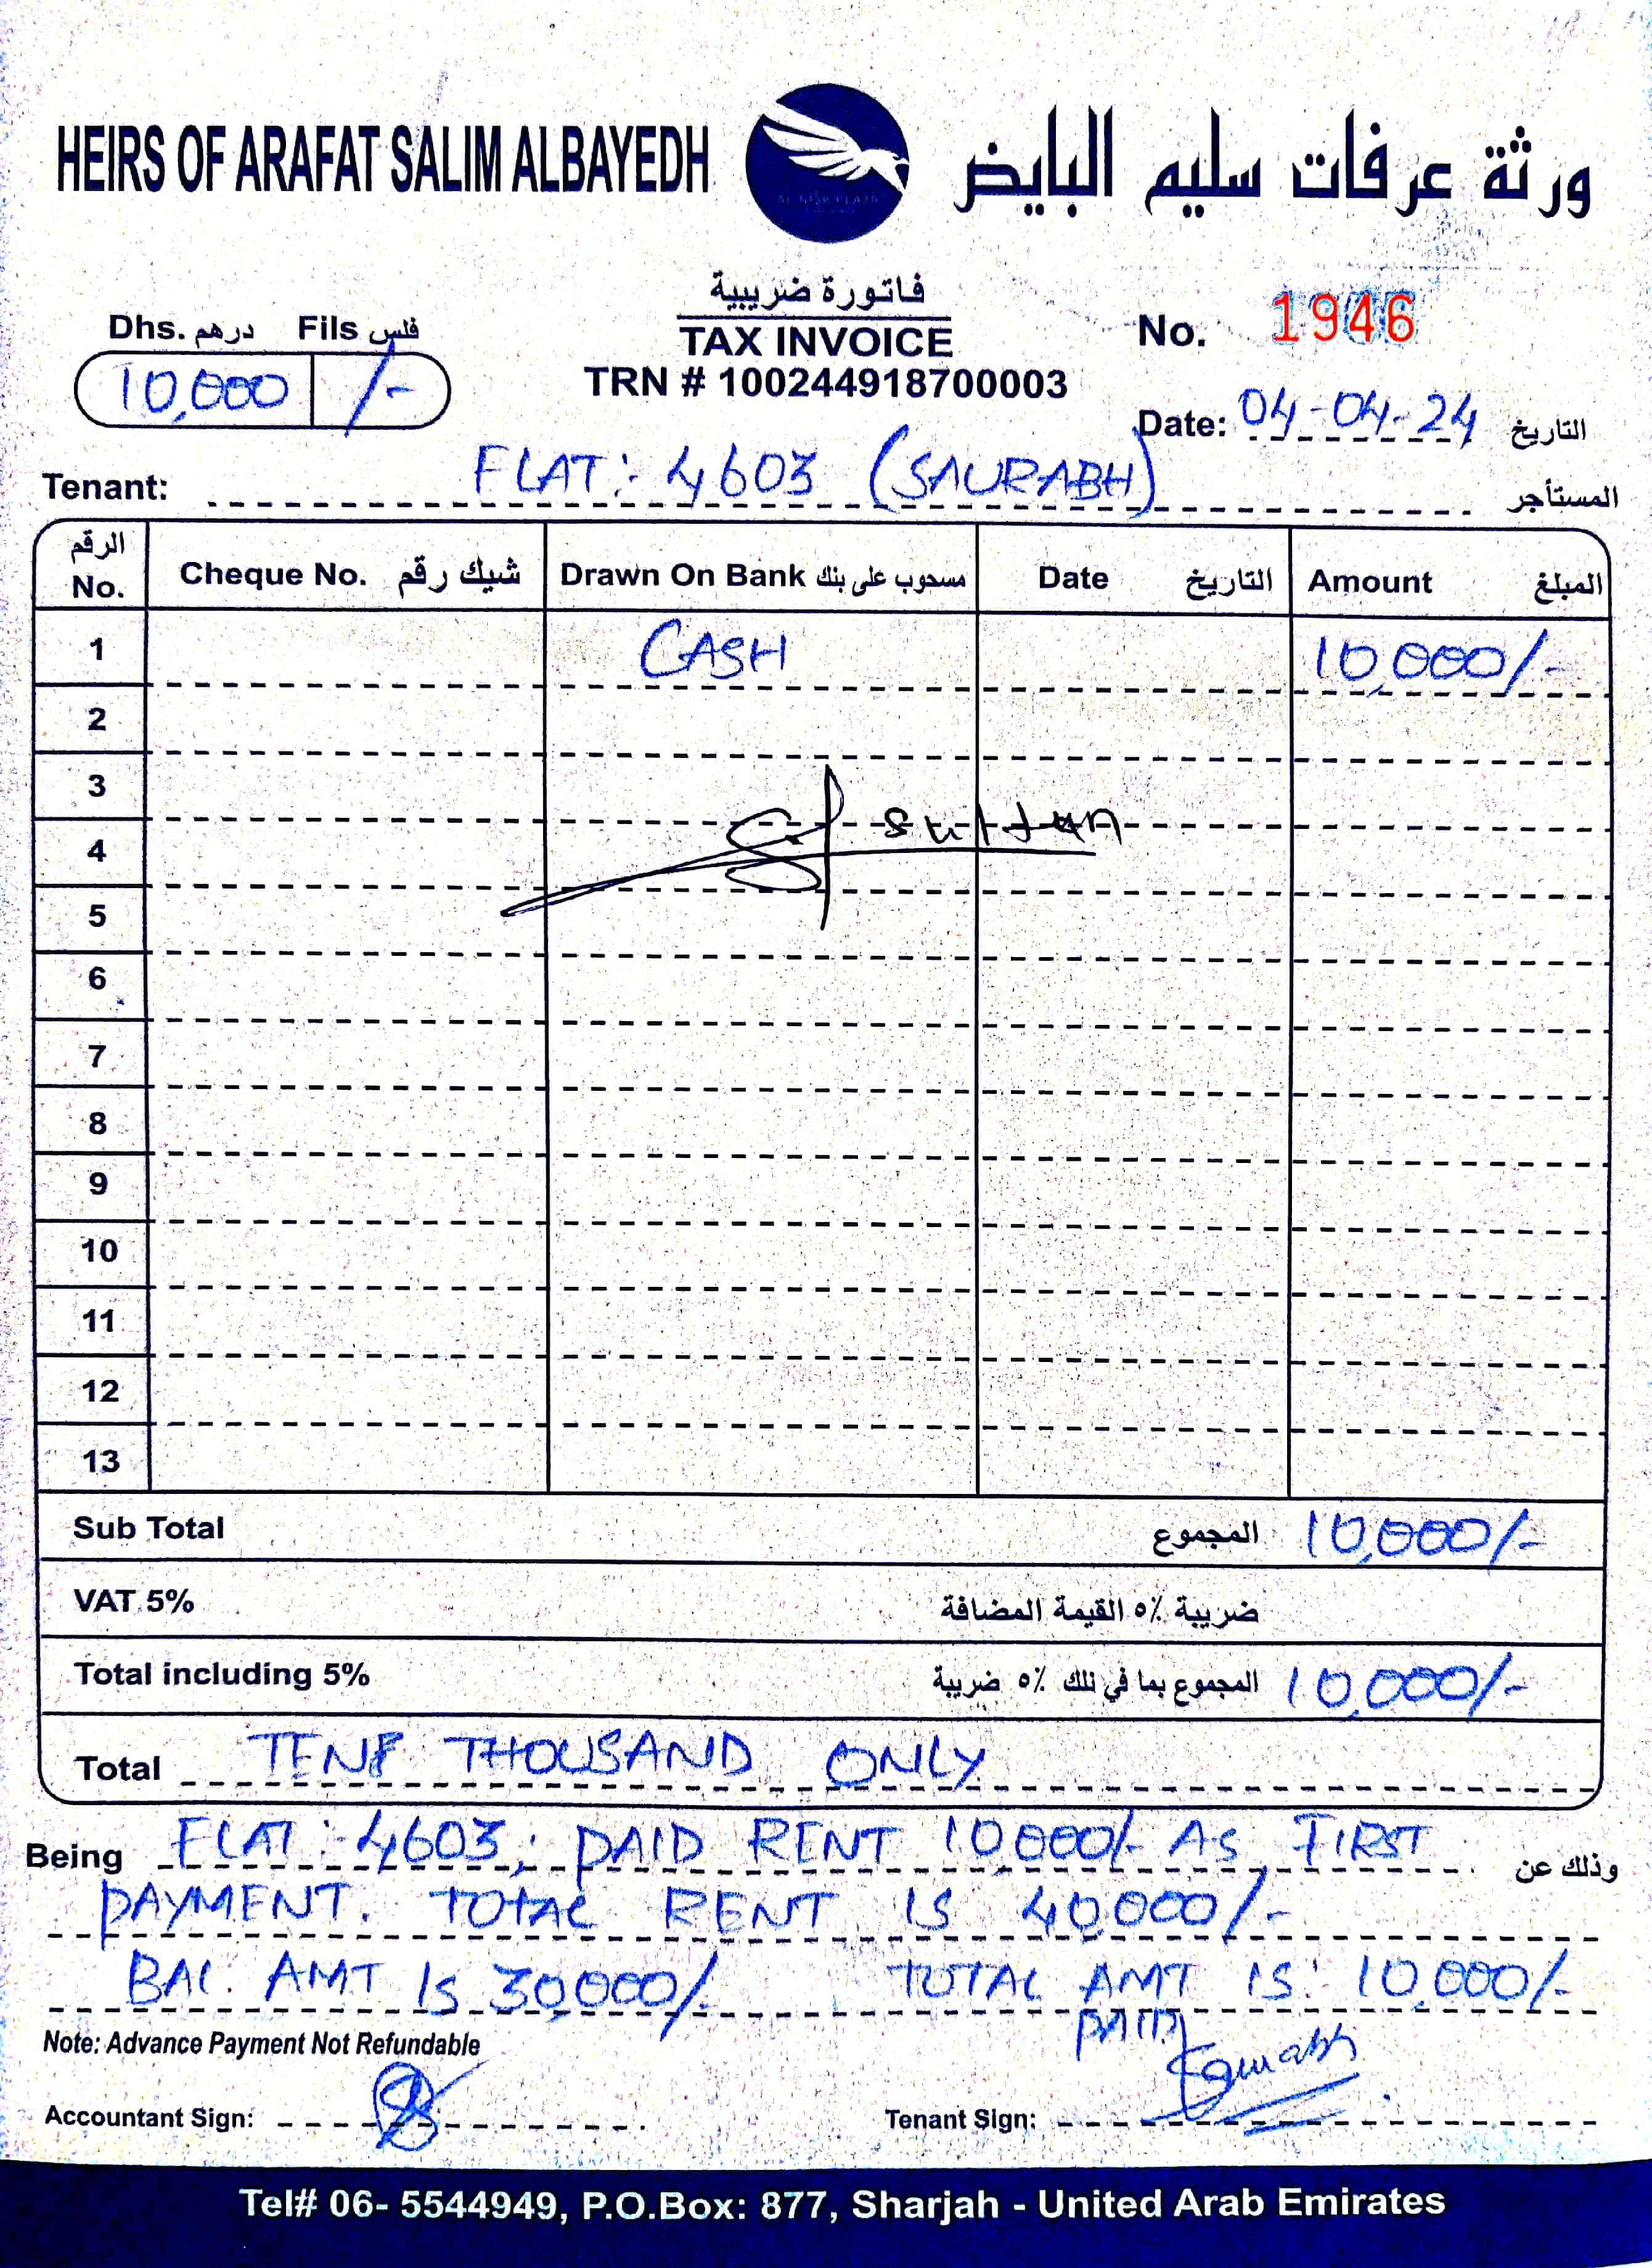 HEIRS OF ARAFAT SALIM ALBAYEDH
ورثة عرفات سليم البايض
AL NISR PLAZA
فاتورة ضريبية
TAX INVOICE
TRN # 100244918700003
Dhs. درهم Fils فلس
10,000 /-
No. 1946
Date: 04-04-24 التاريخ
Tenant: FLAT:- 4603 (SAURABH) المستأجر
الرقم No. Cheque No. شيك رقم Drawn On Bank مسحوب على بنك Date التاريخ Amount المبلغ
1 CASH 10,000/-
2
3
4 Sultan
5
6
7
8
9
10
11
12
13
Sub Total المجموع 10,000/-
VAT 5% ضريبة ٥٪ القيمة المضافة
Total including 5% المجموع بما في ذلك ٥٪ ضريبة 10,000/-
Total TEN THOUSAND ONLY
Being FLAT:-4603; PAID RENT 10,000/- AS FIRST وذلك عن
PAYMENT. TOTAL RENT IS 40,000/-
BAL. AMT IS 30,000/- TOTAL AMT IS: 10,000/-
PAID
Note: Advance Payment Not Refundable
Accountant Sign: Tenant Sign: Saurabh
Tel# 06- 5544949, P.O.Box: 877, Sharjah - United Arab Emirates